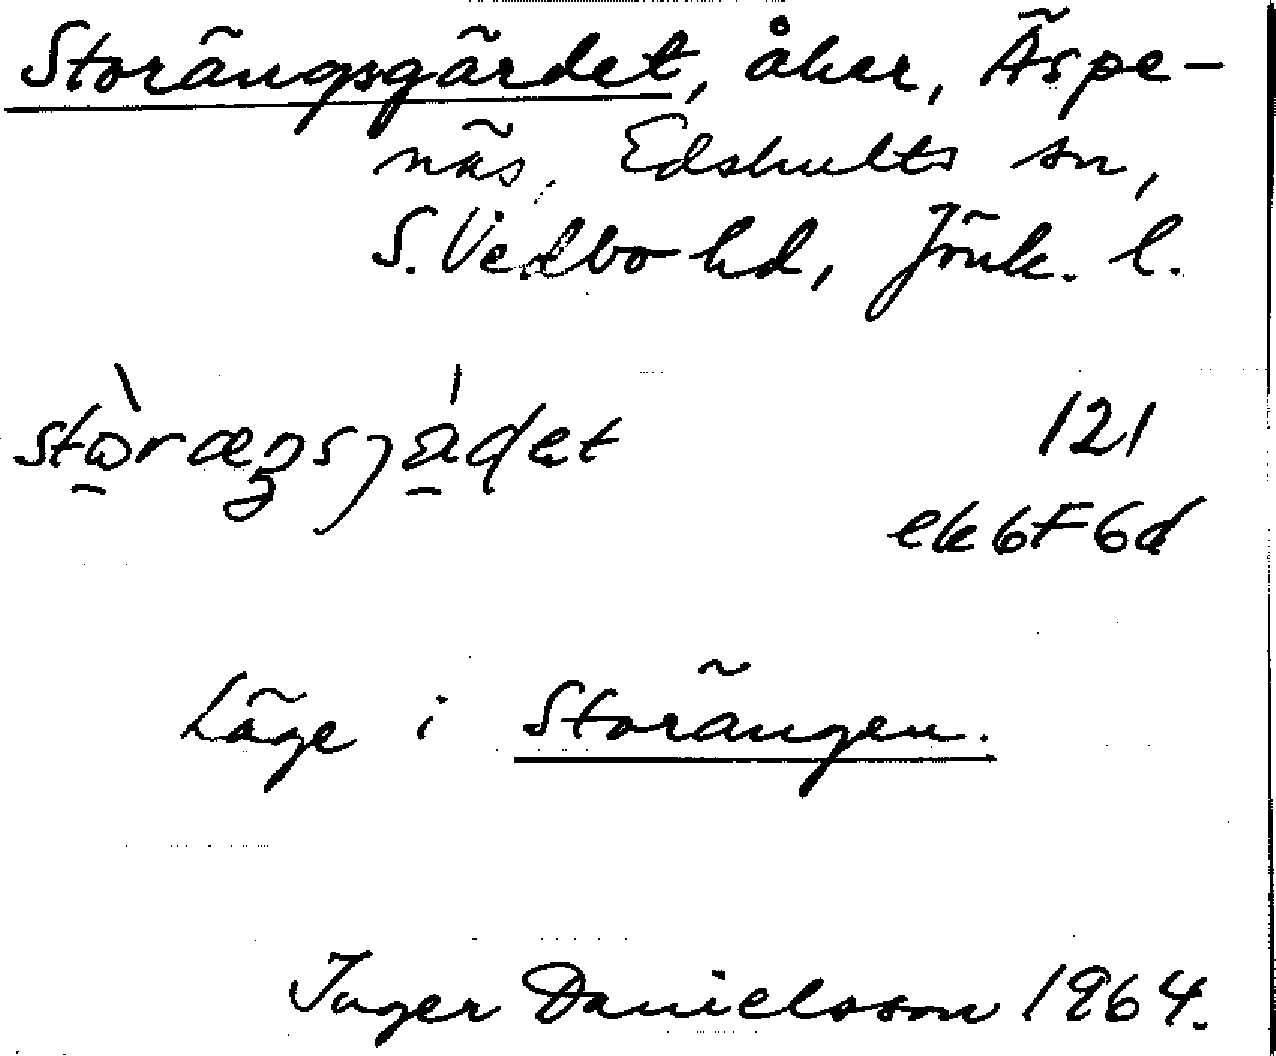 Storängsgärdet, åker, Äspe-
näs, Edshults sn,
S. Vedbo hd, Jönk. l.
121
ek 6F6d
Läge i Storängen.
Inger Danielsson 1964.